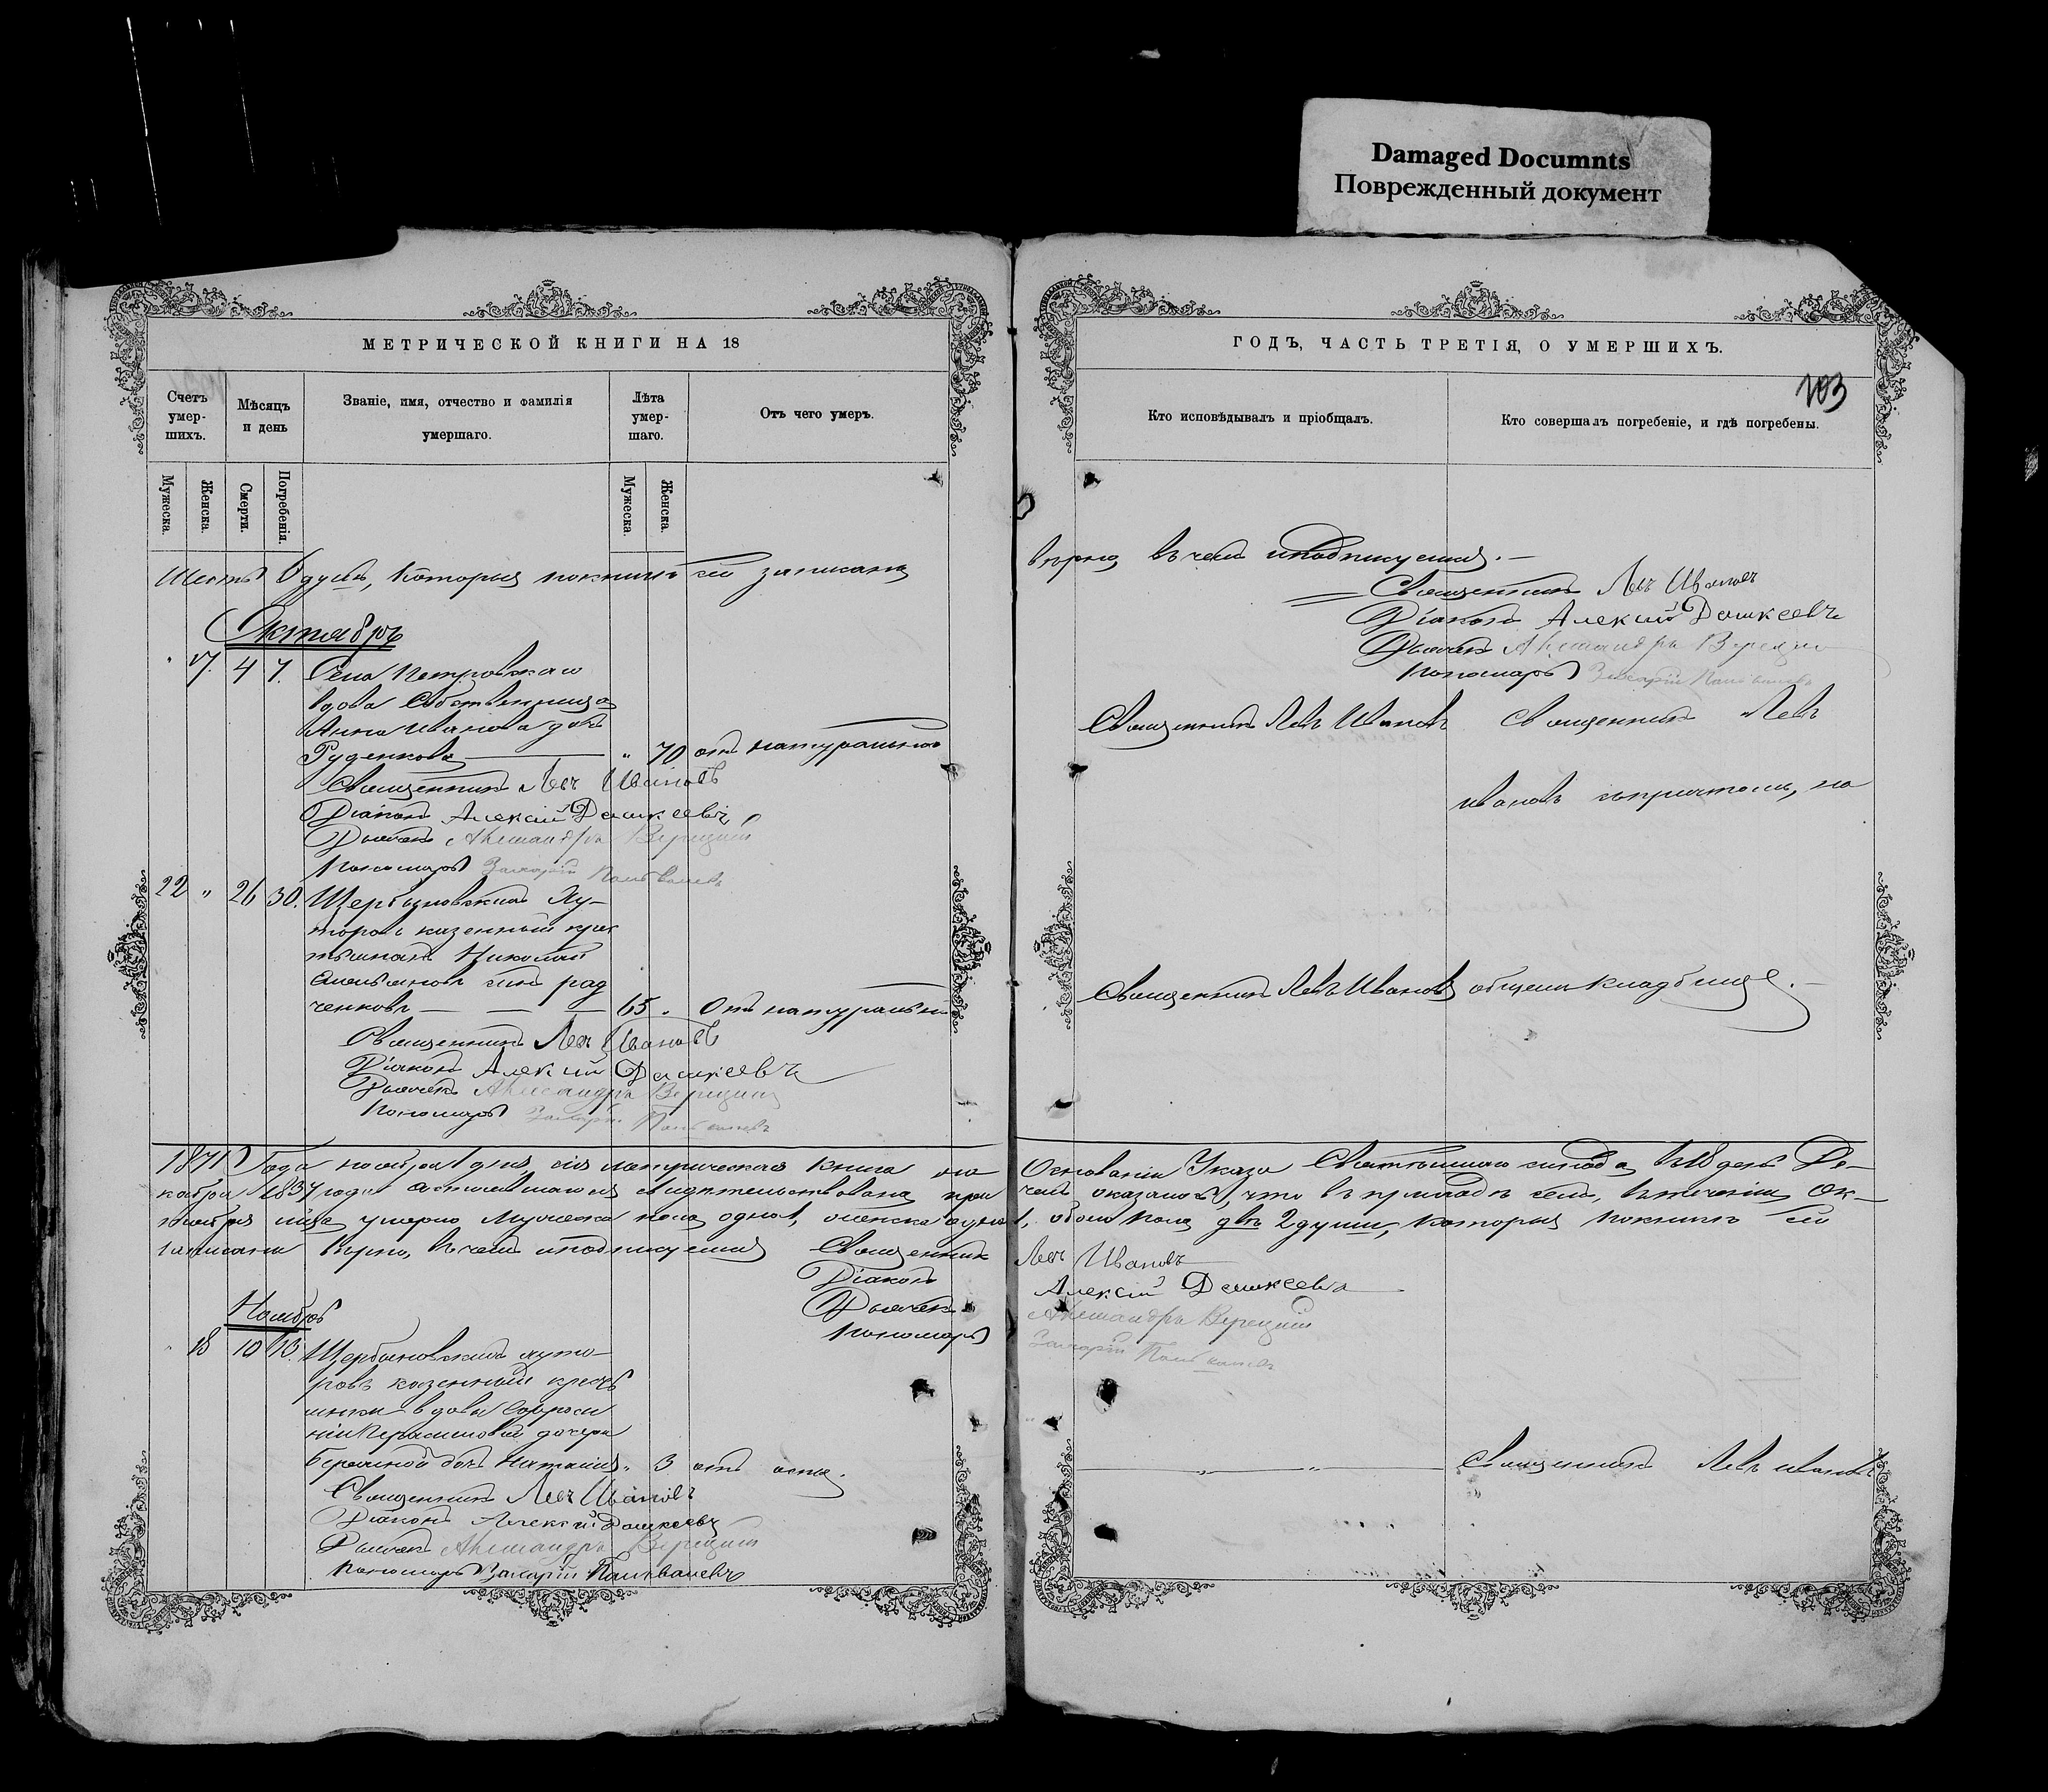 Damaged Documnts
Поврежденный документ
МЕТРИЧЕСКОЙ КНИГИ НА 18
Счетъ умер-шихъ.
Мѣсяцъ и день
Званіе, имя, отчество и фамилія умершаго.
Лѣта умер-шаго.
Отъ чего умеръ.
Мужеска.
Женска.
Смерти.
Погребенія.
Мужеска.
Женска.
Шесть 6 душъ, которыя по книгѣ сей записаны
Октябрь
" 17. 4 7. Села Петровскаго
вдова собственница
Анна Иванова дочь
Руденкова " 70 отъ натуральной
Священникъ Левъ Ивановъ
Діаконъ Алексій Дашкеевъ
Дьячекъ Александръ
Пономарь Захарій
22 " 26 30. Щербиновскихъ Ху-
торовъ казенный крес
тьянинъ Николай
Емельяновъ сынъ Рад
ченковъ — — — 65 " Отъ натуральной
Священникъ Левъ Ивановъ
Діаконъ Алексій Дашкеевъ
Дьячекъ Александръ
Пономарь Захарій
1871 Года ноября 1 дня, сія метрическая книга на
кабря 1837 года состоявшагося свидѣтельствована при
тября мца умерло мужеска пола одна 1, женска одна
записаны вѣрно, въ чемъ и подписуемся Священникъ
Діаконъ
Дьячекъ
Пономарь
Ноябрь
" 18 10 13. Щербиновскихъ хуто-
ровъ казенный крестъ
янки вдовы
дочери
дочь Наталия " 3 отъ оспы.
Священникъ Левъ Ивановъ
Діаконъ Алексій Дашкеевъ
Дьячекъ Александръ
Пономарь Захарій
ГОДЪ, ЧАСТЬ ТРЕТІЯ, О УМЕРШИХЪ.
103
Кто исповѣдывалъ и пріобщалъ.
Кто совершалъ погребеніе, и гдѣ погребены.
вѣрно въ чемъ и подписуемся. —
Священникъ Левъ Ивановъ
Діаконъ Алексій Дашкеевъ
Дьячекъ Александръ
Пономарь Захарій
Священникъ Левъ Ивановъ Священникъ Левъ
Ивановъ съ причтомъ, на
Священникъ Левъ Ивановъ общемъ кладбищѣ. —
Основаніи Указа Святѣйшаго синода въ 18 день Де-
чемъ оказалось, что въ приходѣ семъ, въ теченіи Ок-
1, обоего пола двѣ 2 души, которыя по книгѣ сей
Левъ Ивановъ
Алексій Дашкеевъ
Александръ
Захарій
— " — " — Священникъ Левъ Ивановъ